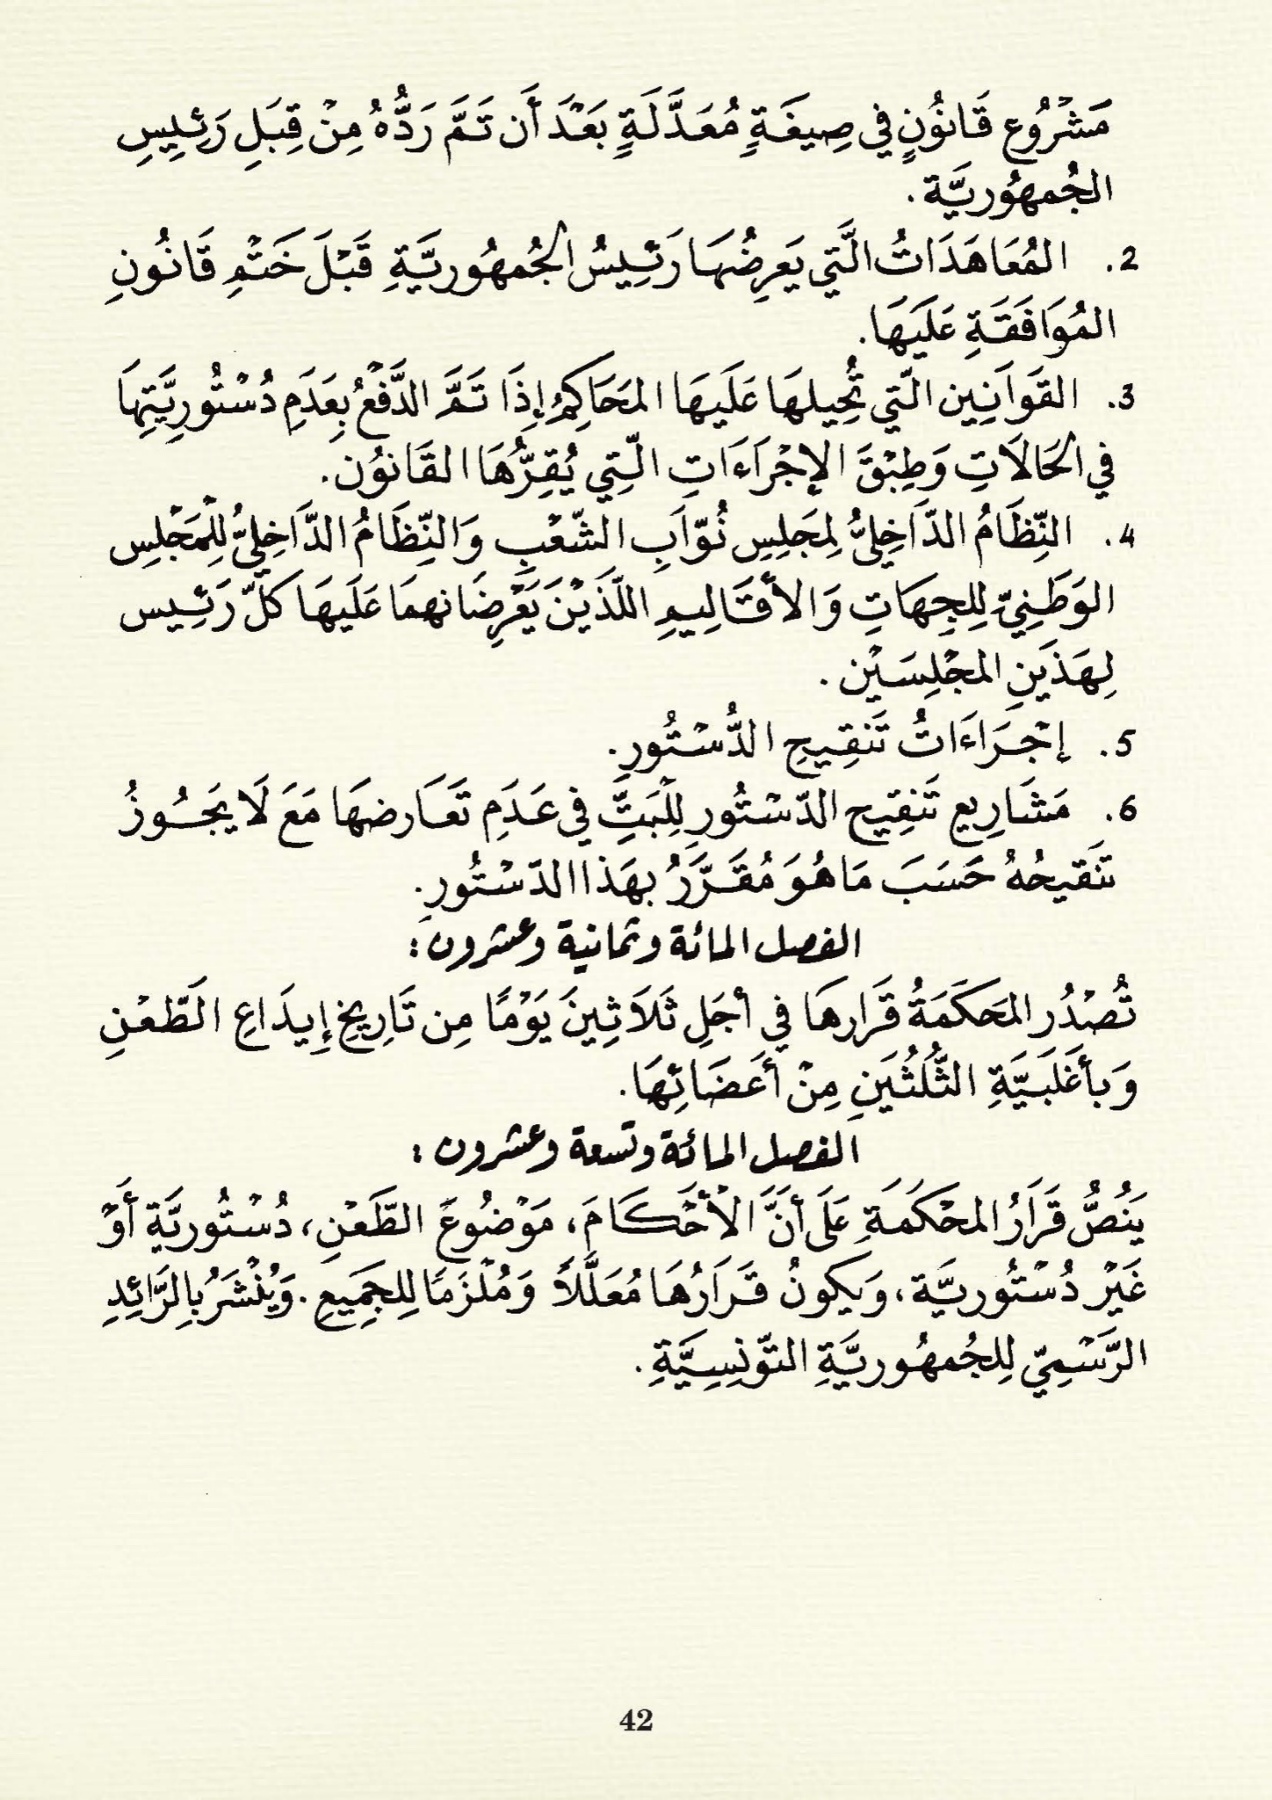 مَشْرُوعِ قَانُونٍ فِي صِيغَةٍ مُعَدَّلَةٍ بَعْدَ أَن تَمَّ رَدُّهُ مِنْ قِبَلِ رَئِيسِ
الجُمهُوريَّة.
2. المُعَاهَدَاتُ الَّتِي يَعرِضُهَا رَئِيسُ الجُمهُوريَّةِ قَبْلَ خَتْمِ قَانُونِ
المُوَافَقَةِ عَلَيَهَا.
3. القَوَانِين الّتِي تُحِيلهَا عَلَيهَا المَحَاكِمُ إِذَا تَمَّ الدَّفْعُ بِعَدَمِ دُسْتُورِيَّتِهَا
فِي الحَالَاتِ وَطِبْقَ الإجْرَاءَاتِ الّتِي يُقِرُّهَا القَانُون.
4. النِّظَامُ الدَّاخِلِيُّ لِمَجَلِسِ نُوّابِ الشّعْبِ وَالنِّظَامُ الدَّاخِلِيُّ لِلْمَجْلِسِ
الوَطَنِيّ لِلجِهَاتِ وَالأقَالِيمِ اللّذَيْنَ يَعْرِضَانهمَا عَلَيهَا كلّ رَئِيس
لِهَذَينِ المجْلِسَيْن.
5. إجْرَاءَاتُ تَنقِيحِ الدُّسْتُورِ.
6. مَشَارِيع تَنقِيح الدّسْتُورِ لِلْبَتِّ فِي عَدَمِ تَعَارضهَا مَعَ لَا يَجَوزُ
تَنَقيحُهُ حَسَبَ مَا هُوَ مُقَرَّرُ بهَذا الدّسْتُورِ.
الفصل المائة وثمانية وعشرون:
تُصْدُر المَحَكَمَةُ قَرَارهَا فِي أجَلِ ثَلَاثِينَ يَوْمًا مِن تَارِيخِ إِيدَاعِ الطَّعْنِ
وَبأغَلَبَيَّةِ الثُّلُثَينِ مِنْ أعَضَائِهَا.
الفصل المائة وتسعة وعشرون:
يَنُصُّ قَرَارُ المحْكَمَةِ عَلَى أنَّ الْأحْكَامَ، مَوْضُوعَ الطَّعْنِ، دُسْتُوريَّةٍ أوْ
غَيْر دُسْتُوريَّة، وَيكونُ قَرَارُهَا مُعَلَّلاً وَمُلْزَمًا لِلجَمِيعِ. وَيُنْشَرُ بِالرَّائِدِ
الرَّسْمِيّ لِلجُمهُوريَّةِ التّونِسِيَّةِ.
42